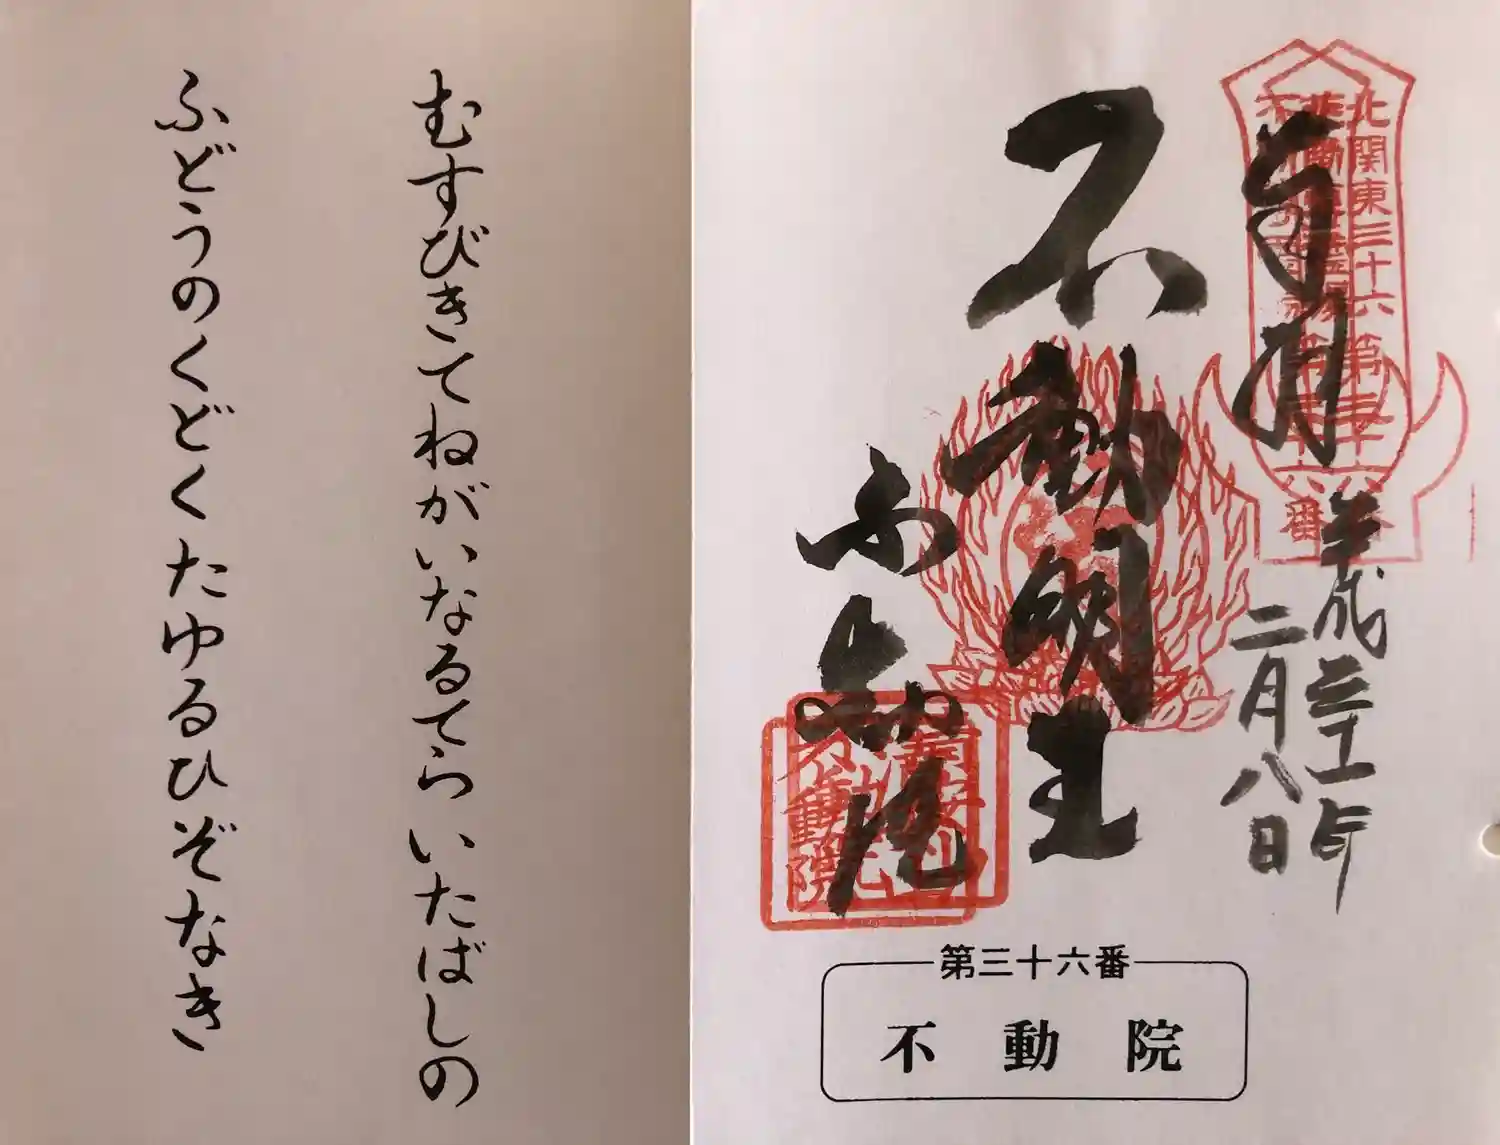 北関東三十六
平成三十一年
二月八日
不動明王
不動院
不動院
第三十六番
不動院
むすびきてねがいなるてら いたばしの
ふどうのくどくたゆるひぞなき